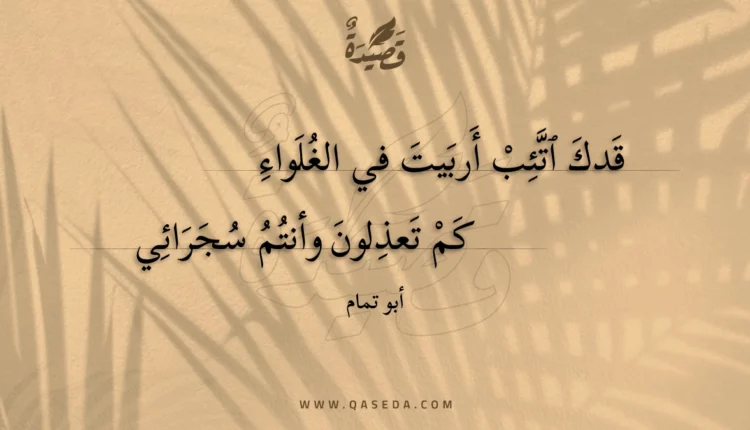 قَصِيْدَةٌ
قَدكَ ٱتَّئِبْ أَربَيتَ في الغُلَواءِ
كَمْ تَعذِلونَ وأنتُمُ سُجَرَائِي
أبو تمام
WWW.QASEDA.COM